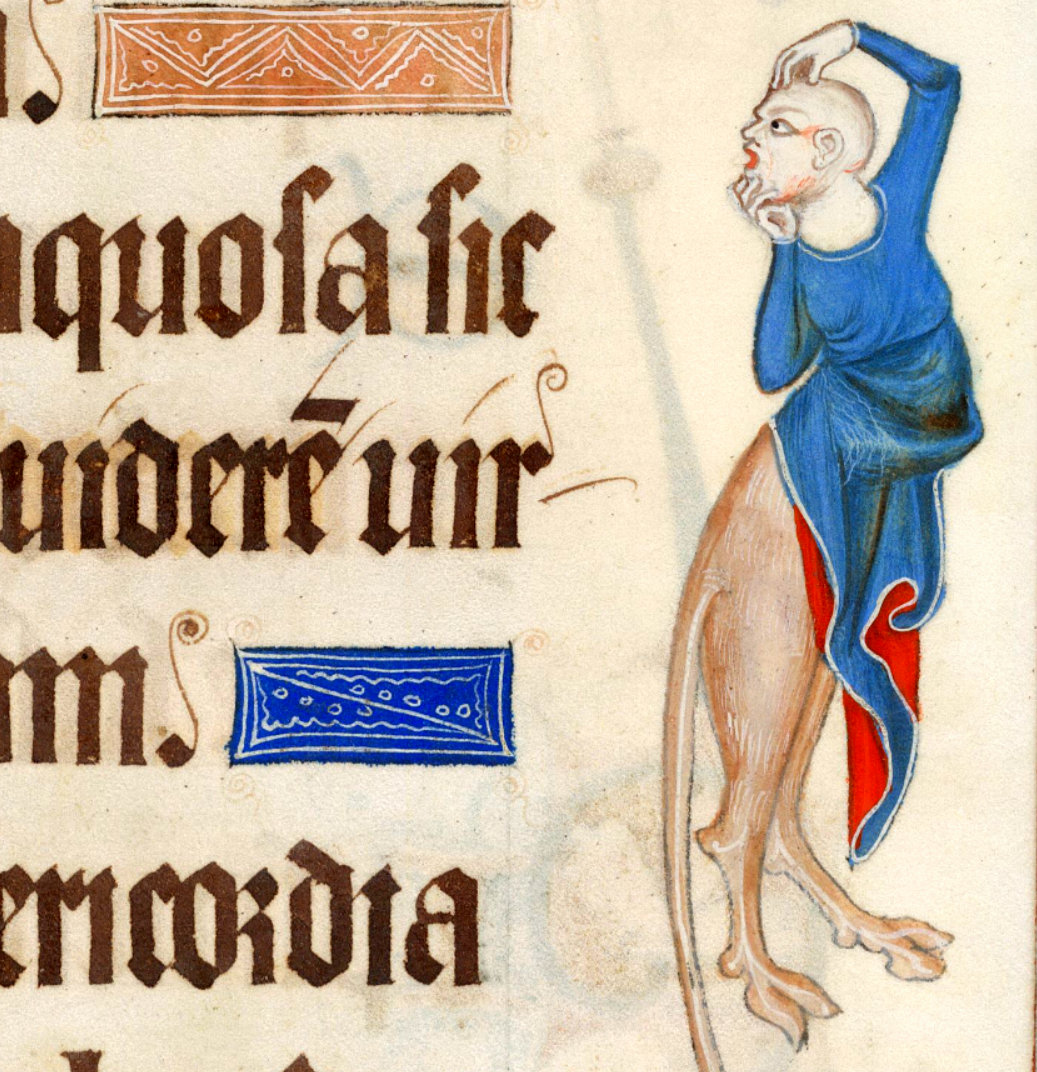 quoſa ſic
uiderē uir
m.
ericordia